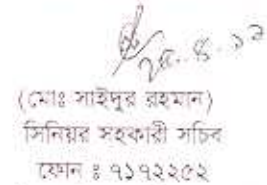 ২৫.৪.১২
(মোঃ সাইদুর রহমান)
সিনিয়র সহকারী সচিব
ফোন ঃ ৭১৭২২৫২